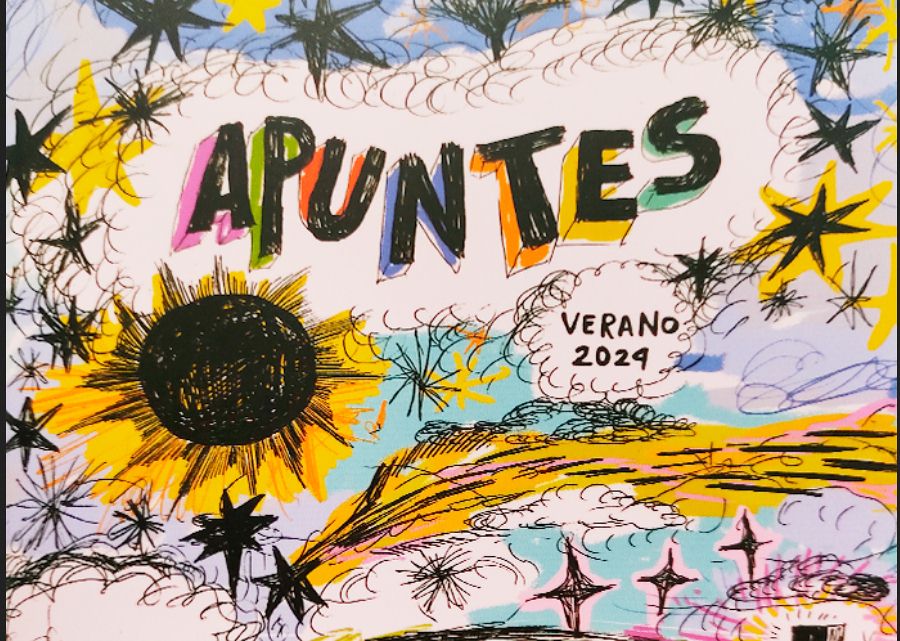 APUNTES
VERANO
2024